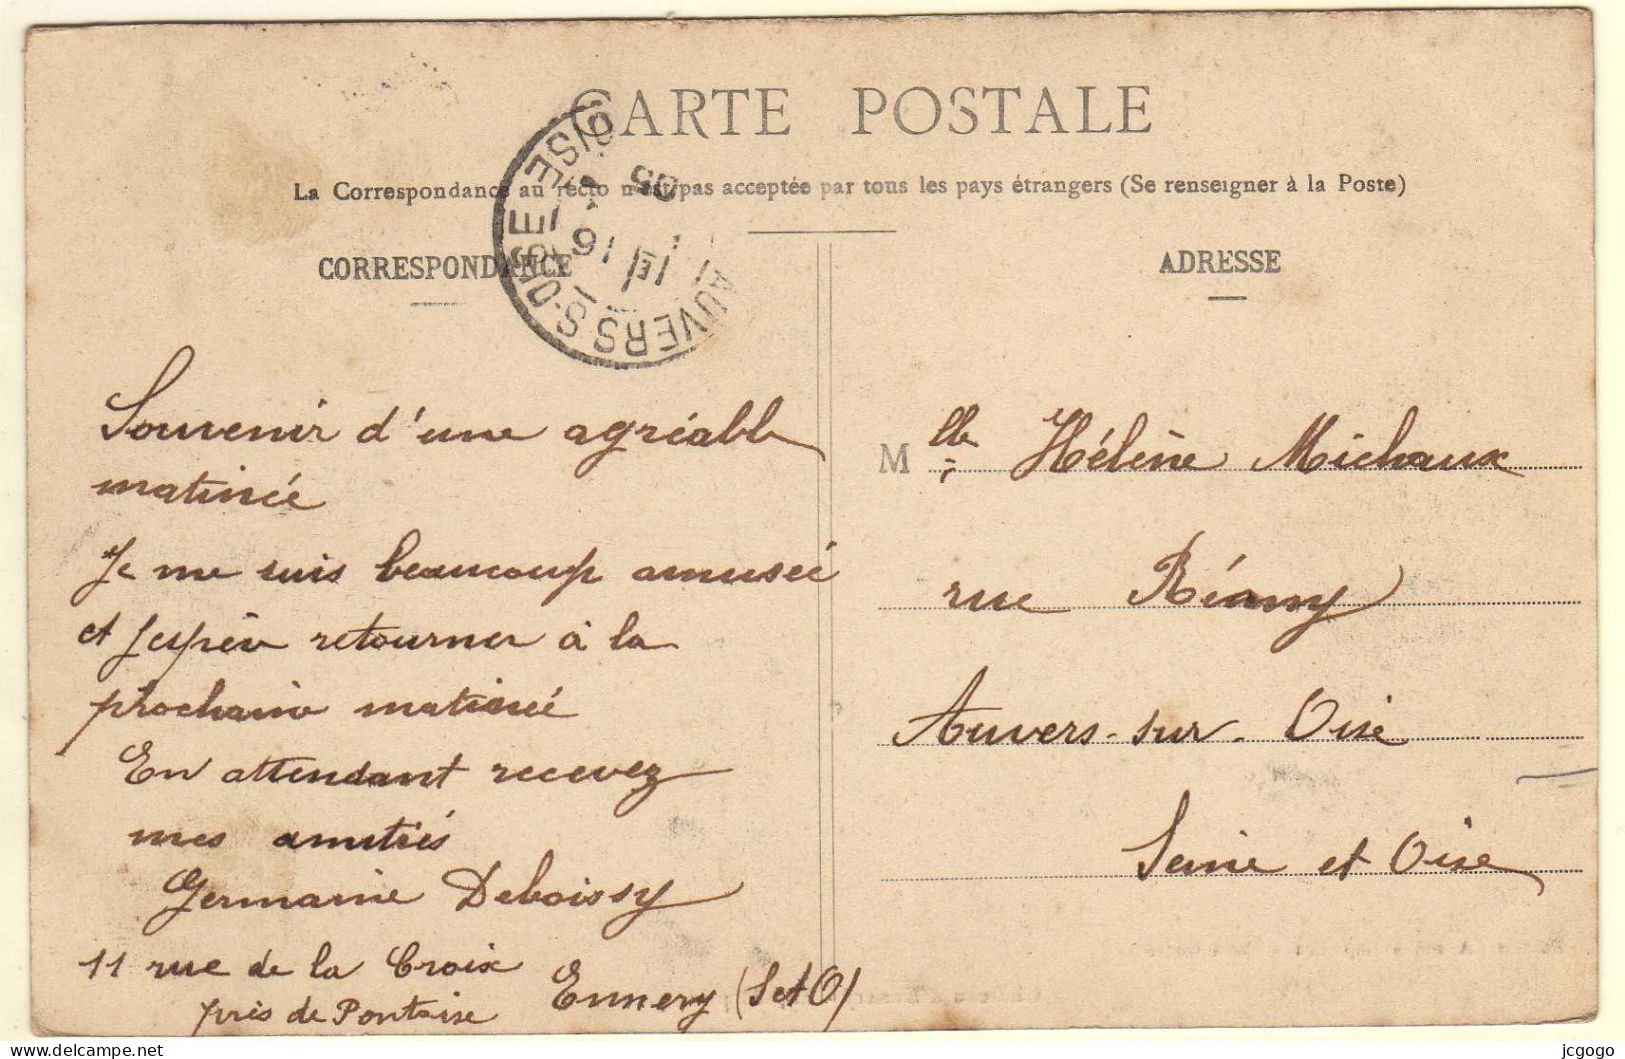 CARTE POSTALE
La Correspondance au recto n'est pas acceptée par tous les pays étrangers (Se renseigner à la Poste)
CORRESPONDANCE
ADRESSE
AUVERS-S-OISE
OISE
16
05
Souvenir d'une agréable
matinée
Je me suis beaucoup amusée
et j'espère retourner à la
prochaine matinée
En attendant recevez
mes amitiés
Germaine Deboissy
11 rue de la Croix
près de Pontoise
Ennery (S et O)
Mlle Hélène Michaux
rue Rémy
Auvers-sur-Oise
Seine et Oise
jcgogo